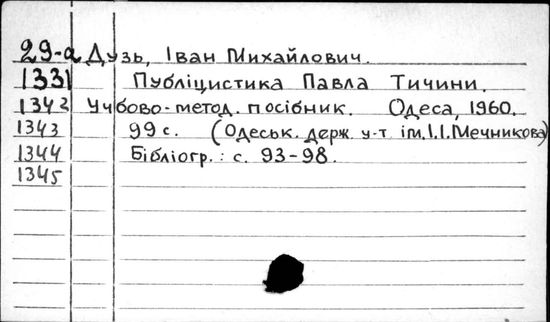 29-а Дузь, Іван Михайлович.
1331 Публіцистика Павла Тичини.
1342 Учбово-метод. посібник. Одеса, 1960.
1343 99 с. (Одеськ. держ. у-т ім. І.І. Мечникова)
1344 Бібліогр.: с. 93-98.
1345